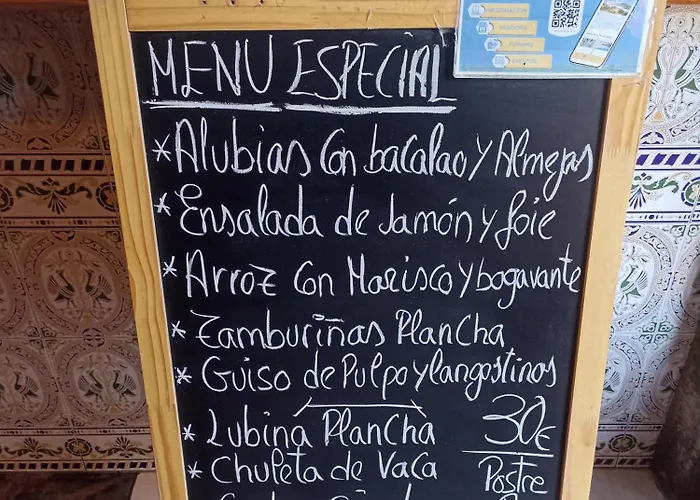 MENU ESPECIAL
*Alubias Con bacalao y Almejas
*Ensalada de Jamón y foie
*Arroz Con Marisco y bogavante
*Zamburiñas Plancha
*Guiso de Pulpo y langostinos
*Lubina Plancha 30€
*Chuleta de Vaca Postre